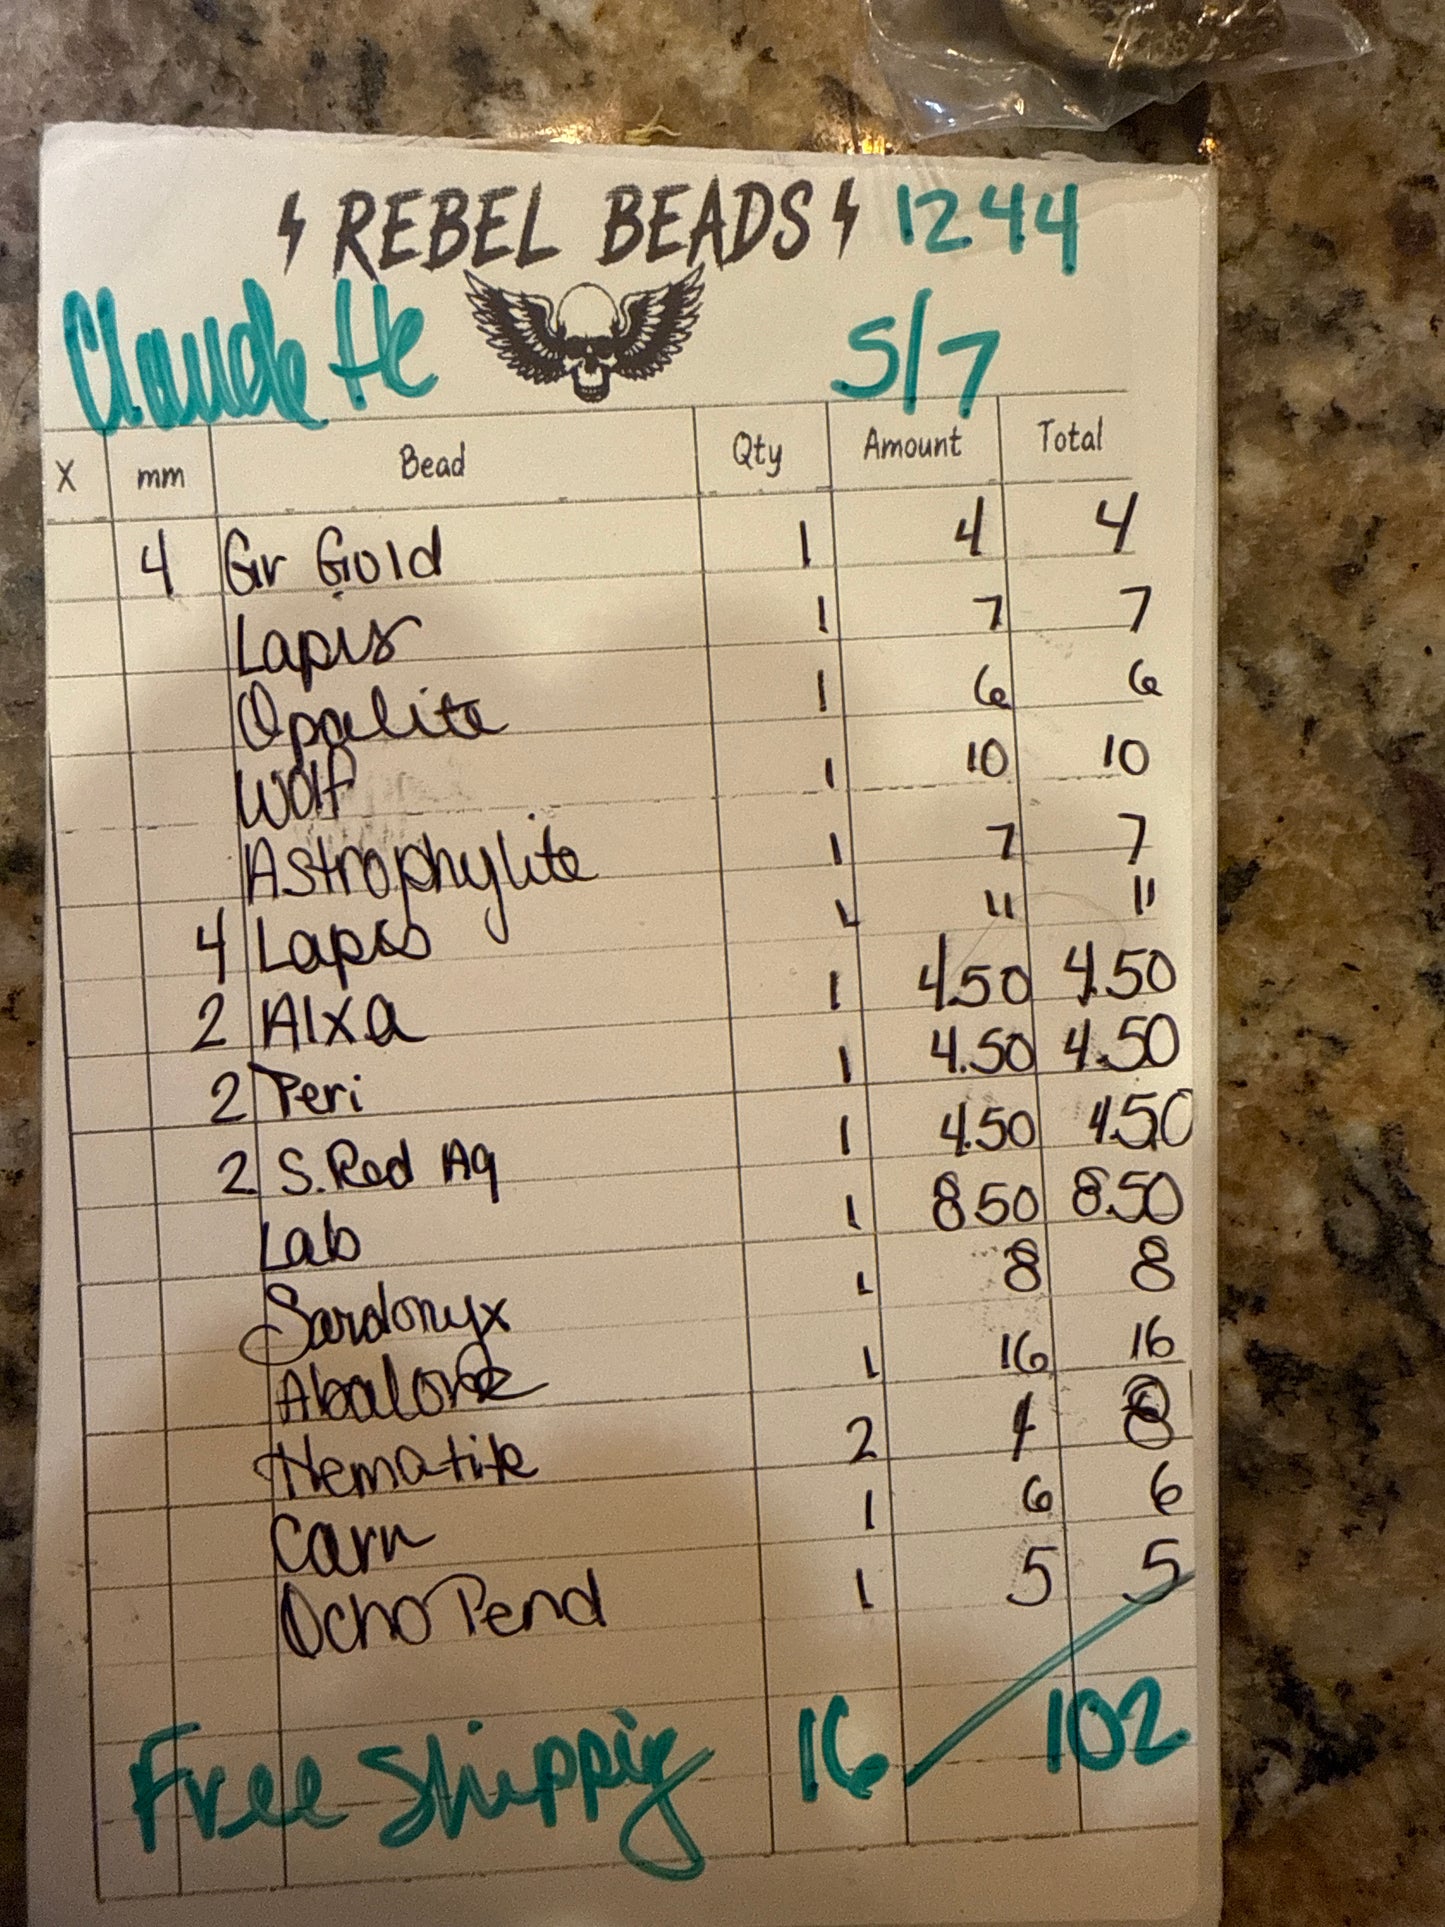 REBEL BEADS 1244
Claudette 5/7
X mm Bead Qty Amount Total
4 Gr Gold 1 4 4
Lapis 1 7 7
Opalite 1 6 6
Wolf 1 10 10
Astrophylite 1 7 7
4 Lapis 1 11 11
2 Alxa 1 4.50 4.50
2 Peri 1 4.50 4.50
2 S.Red Ag 1 4.50 4.50
Lab 1 8.50 8.50
Sardonyx 1 8 8
Abalone 1 16 16
Hematite 2 4 8
Carn 1 6 6
Ocho Pend 1 5 5
Free Shippig 16 102